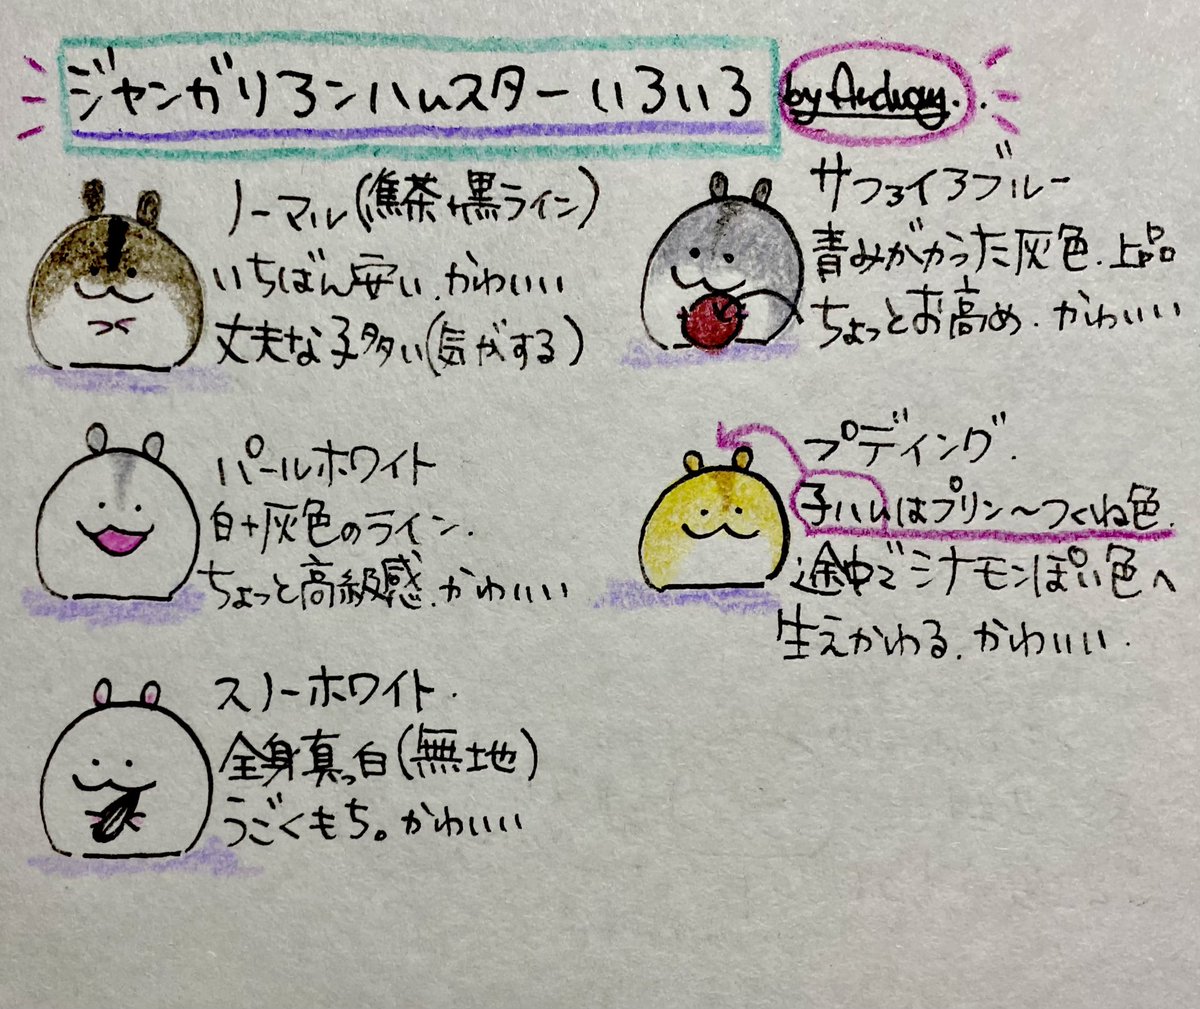 ジャンガリアンハムスターいろいろ
by Audrey.
ノーマル(焦茶+黒ライン)
いちばん安い.かわいい
丈夫な子多い(気がする)
サファイアブルー
青みがかった灰色.上品
ちょっとお高め.かわいい
パールホワイト
白+灰色のライン.
ちょっと高級感.かわいい
プディング
子ハムはプリン〜つくね色.
途中でシナモンぽい色へ
生えかわる.かわいい.
スノーホワイト.
全身真っ白(無地)
うごくもち。かわいい